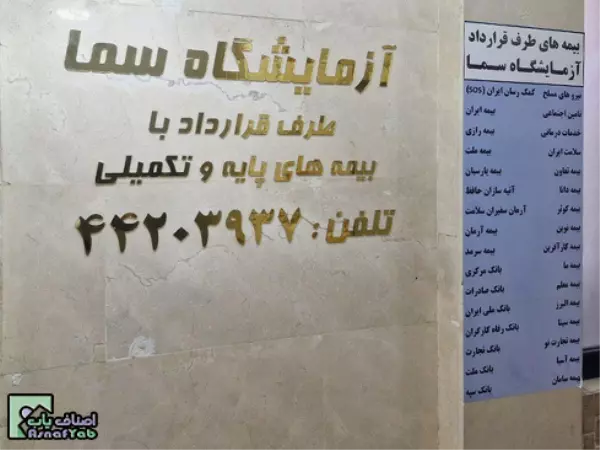 آزمایشگاه سما
طرف قرارداد با
بیمه های پایه و تکمیلی
تلفن: ۴۴۲۰۳۹۳۷
بیمه های طرف قرارداد
آزمایشگاه سما
نیرو های مسلح کمک رسان ایران (sos)
تامین اجتماعی بیمه ایران
خدمات درمانی بیمه رازی
سلامت ایران بیمه ملت
بیمه تعاون بیمه پارسیان
بیمه دانا آتیه سازان حافظ
بیمه کوثر آرمان سفیران سلامت
بیمه نوین بیمه آرمان
بیمه کارآفرین بیمه سرمد
بیمه ما بانک مرکزی
بیمه معلم بانک صادرات
بیمه البرز بانک ملی ایران
بیمه سینا بانک رفاه کارگران
بیمه تجارت نو بانک تجارت
بیمه آسیا بانک ملت
بیمه سامان بانک سپه
اصناف یاب
AsnafYab